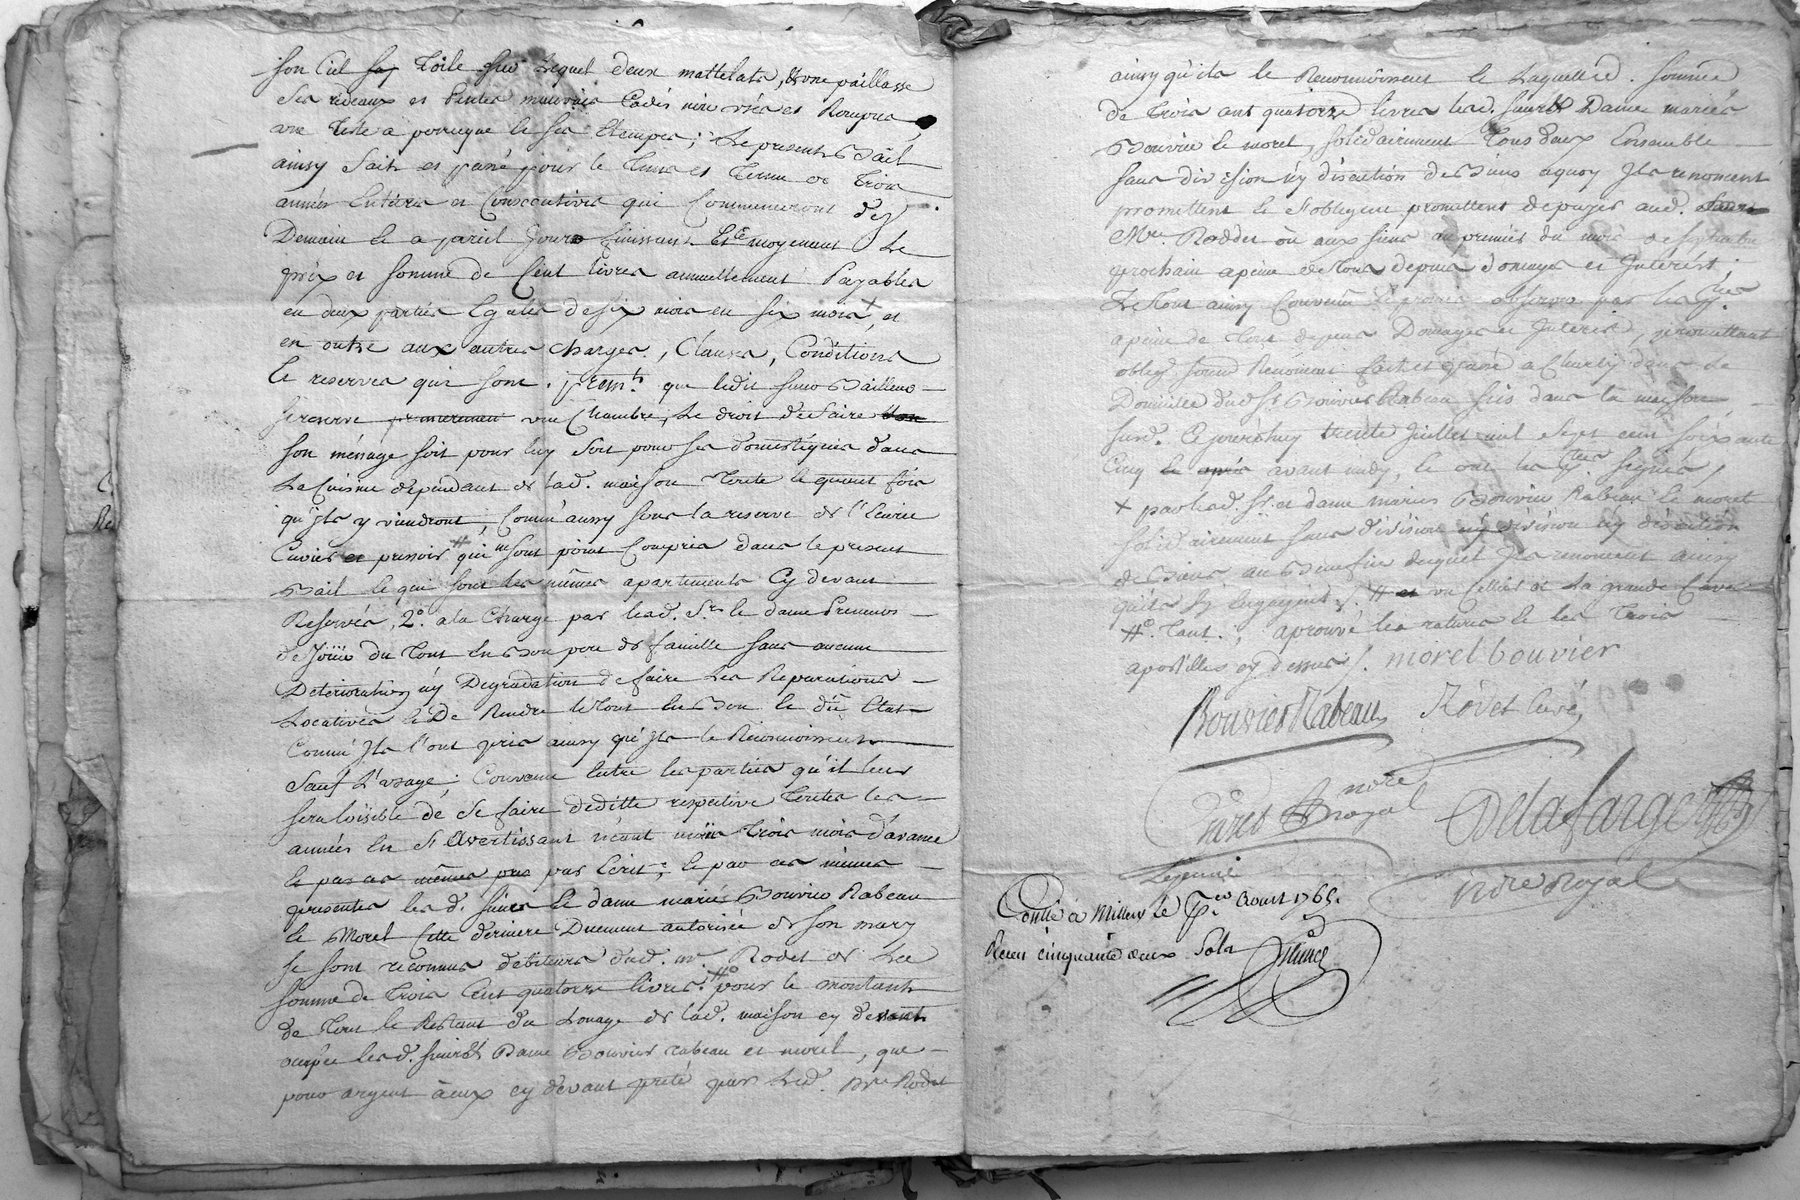 son Ciel toile sur Lequel deux mattelats, & une paillasse
Ses rideaux et Pentes mauvais Cadis usés et Rompus
une Teste a perruque le present Bail
ainsy fait et passé pour le tems et terme de Trois
années Entiéres et Consecutives qui Commenceront dez
Demain Et a pareil Jour finissant Et ce moyenant Le
prix et somme de Cent livres annuellement Payables
en deux parties Egales de six mois en six mois, et
en outre aux autres charges, Clauses, Conditions
Et reserves qui sont. prem.t que ledit sieur Bailleur
se reserve premierement une Chambre, Le droit de faire
son ménage soit pour luy soit pour ses domestiques dans
La Cuisine dépendant de lad. maison Toute & quant fois
qu'Ils y viendront, Comme aussy sous la reserve de l'Ecurie
Cuvier et pressoir # qui ne sont point Compris dans le present
Bail et qui sont les mêmes apartements Cy devant
Reservés, 2.° a la Charge par lesd. S.rs et dame Preneurs
de Joüir du tout En Bon pere de famille sans aucune
Deterioration n'y Degradation de faire Les Reparations
Locatives et De Rendre le tout En Bon et dû Etat
Comme Ils l'ont pris ainsy qu'Ils le Reconnoissent
Sauf L'usage; Convenu Entre les parties qu'il leur
sera loisible de se faire deditte respective toutes les
années En S'Avertissant Trois mois d'avance
par Ecrit; Et par ces mêmes
presentes les d. sieur Et dame mariés Bouvier Rabeau
et Morel Cette derniere Duement autorisée de son mary
se sont reconnus débiteurs dud. m.r Rodet de La
somme de Trois Cent quatorze livres #° pour le montant
de tout le Restant du Louage de lad. maison cy devant
ocupée lesd. sieur & Dame Bouvier rabeau et morel, que
pour argent à eux cy devant prété par Led. M.re Rodet
ainsy qu'ils le Reconnoissent Et Laquelle d. somme
de Trois cent quatorze livres lesd. sieur & Dame mariés
Bouvier et morel, solidairement Tous deux Ensemble
sans division n'y discution de Biens a quoy Ils renoncent
promettent Et s'obligent de payer aud.
M.re Rodet ou aux siens au premier du mois de septembre
prochain a peine de Tous depens domages et Interést;
Le Tout ainsy Convenu & promis observer par les p.ties
a peine de Tous depens Domages et Interest, promettant
oblig. soum. Renoncant fait et passé a
Domicile dud. S.r Bouvier Rabeau sis dans la maison
susd. Ce jourd'huy trente Juillet mil sept cent soixante
Cinq avant midy, et ont les p.ties signés,
+ par lesd. S.r et dame mariés Bouvier Rabeau et morel
solidairement sans division n'y discution
de Biens au Benefice duquel Ils renoncent ainsy
qu'ils S'y Engagent /. # un Cellier et La grande Cave
#° Tant. / aprouvé les ratures et les Trois
apostilles cy dessus /. morel bouvier
Bouvier Rabeau Rodet Curé
not.re Royal
Delafarge
n.re Royal
Contlé à le p.er Aoust 1765.
Reçu cinquante deux Sols